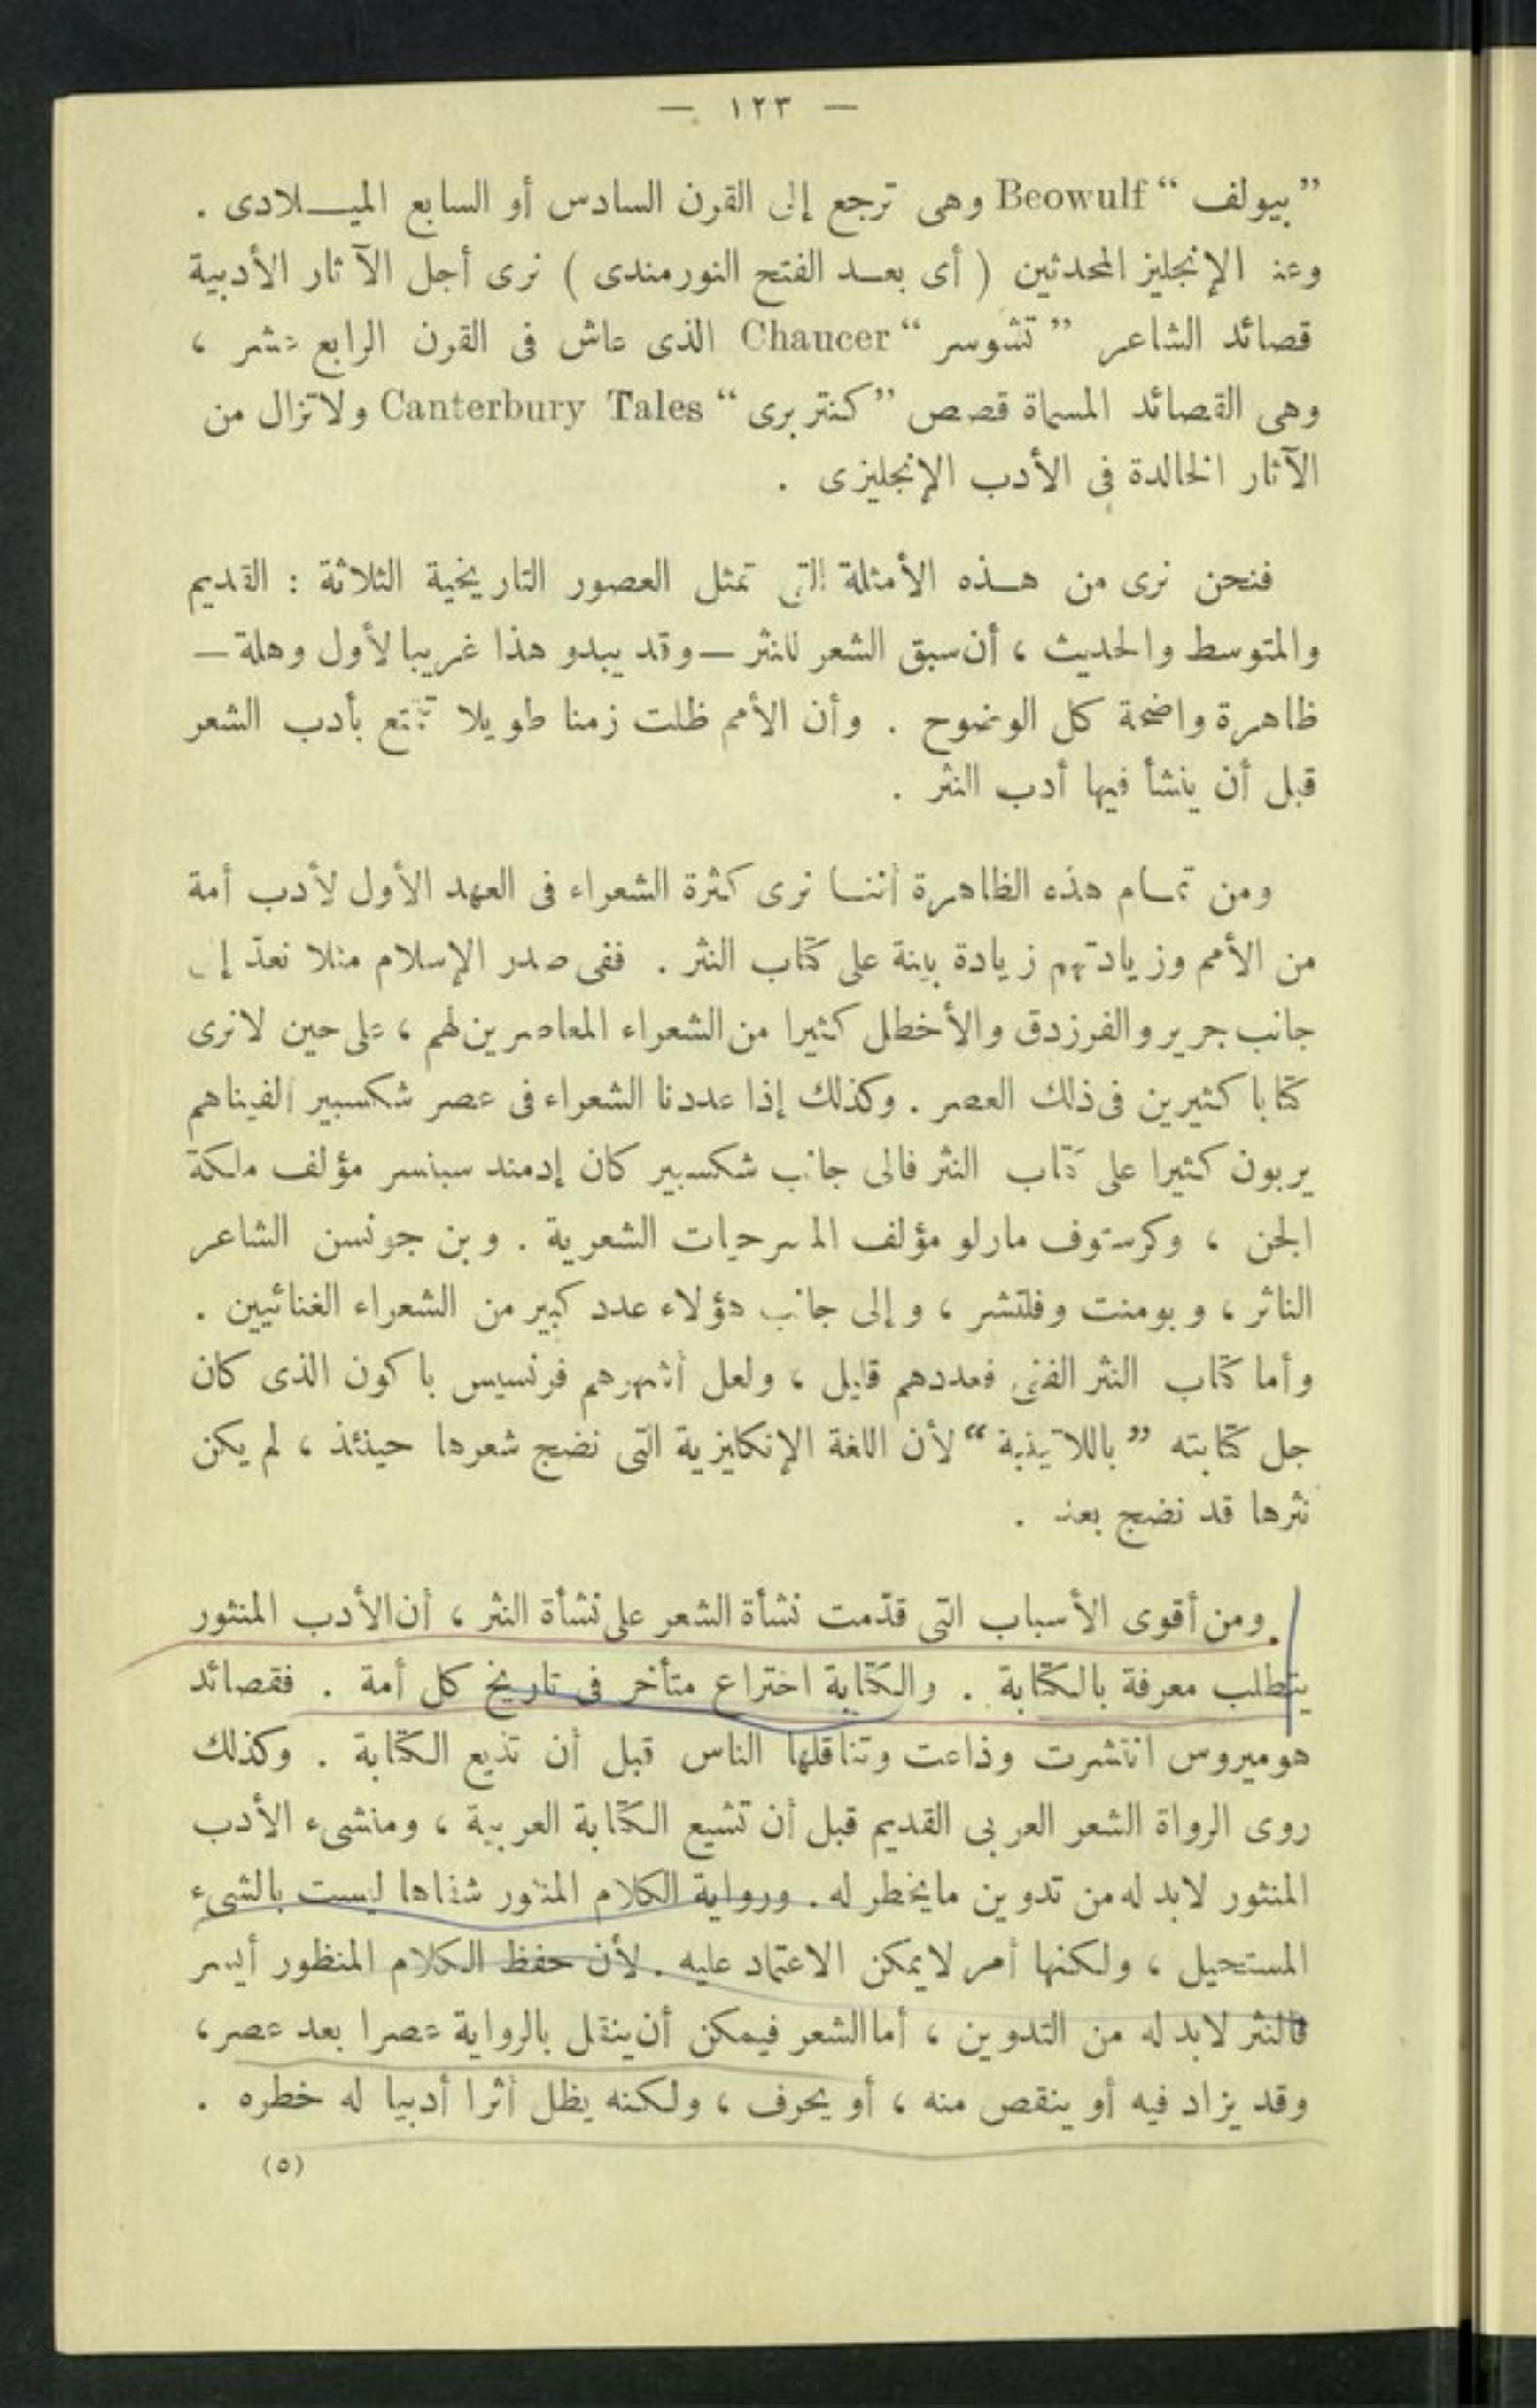 — ١٢٣ —
”بيولف“ Beowulf وهى ترجع إلى القرن السادس أو السابع الميـــلادى .
وعند الإنجليز المحدثين ( أى بعـــد الفتح النورمندى ) نرى أجل الآثار الأدبية
قصائد الشاعر ”تشوسر“ Chaucer الذى عاش فى القرن الرابع عشر ،
وهى القصائد المسماة قصص ”كنتربرى“ Canterbury Tales ولاتزال من
الآثار الخالدة فى الأدب الإنجليزى .
فنحن نرى من هـــذه الأمثلة التى تمثل العصور التاريخية الثلاثة : القديم
والمتوسط والحديث ، أن سبق الشعر للنثر — وقد يبدو هذا غريبا لأول وهلة —
ظاهرة واضحة كل الوضوح . وأن الأمم ظلت زمنا طويلا تتمتع بأدب الشعر
قبل أن ينشأ فيها أدب النثر .
ومن تمـام هذه الظاهرة أننـا نرى كثرة الشعراء فى العهد الأول لأدب أمة
من الأمم وزيادتهم زيادة بينة على كتّاب النثر . ففى صدر الإسلام مثلا نعدّ إلى
جانب جرير والفرزدق والأخطل كثيرا من الشعراء المعاصرين لهم ، على حين لا نرى
كتّابا كثيرين فى ذلك العصر . وكذلك إذا عددنا الشعراء فى عصر شكسبير ألفيناهم
يربون كثيرا على كتّاب النثر فالى جانب شكسبير كان إدمند سبنسر مؤلف ملكة
الجن ، وكرستوف مارلو مؤلف المسرحيات الشعرية . وبن جونسن الشاعر
الناثر ، وبومنت وفلتشر ، وإلى جانب هؤلاء عدد كبير من الشعراء الغنائيين .
وأما كتّاب النثر الفنى فعددهم قليل ، ولعل أشهرهم فرنسيس باكون الذى كان
جل كتابته ”باللاتينية“ لأن اللغة الإنكليزية التى نضج شعرها حينئذ ، لم يكن
نثرها قد نضج بعد .
ومن أقوى الأسباب التى قدّمت نشأة الشعر على نشأة النثر ، أن الأدب المنثور
يتطلب معرفة بالكتابة . والكتابة اختراع متأخر فى تاريخ كل أمة . فقصائد
هوميروس انتشرت وذاعت وتناقلها الناس قبل أن تذيع الكتابة . وكذلك
روى الرواة الشعر العربى القديم قبل أن تشيع الكتابة العربية ، ومنشىء الأدب
المنثور لابد له من تدوين مايخطر له . ورواية الكلام المنثور شفاها ليست بالشىء
المستحيل ، ولكنها أمر لايمكن الاعتماد عليه . لأن حفظ الكلام المنظور أيسر
فالنثر لابد له من التدوين ، أما الشعر فيمكن أن ينقل بالرواية عصرا بعد عصر ،
وقد يزاد فيه أو ينقص منه ، أو يحرف ، ولكنه يظل أثرا أدبيا له خطره .
(٥)